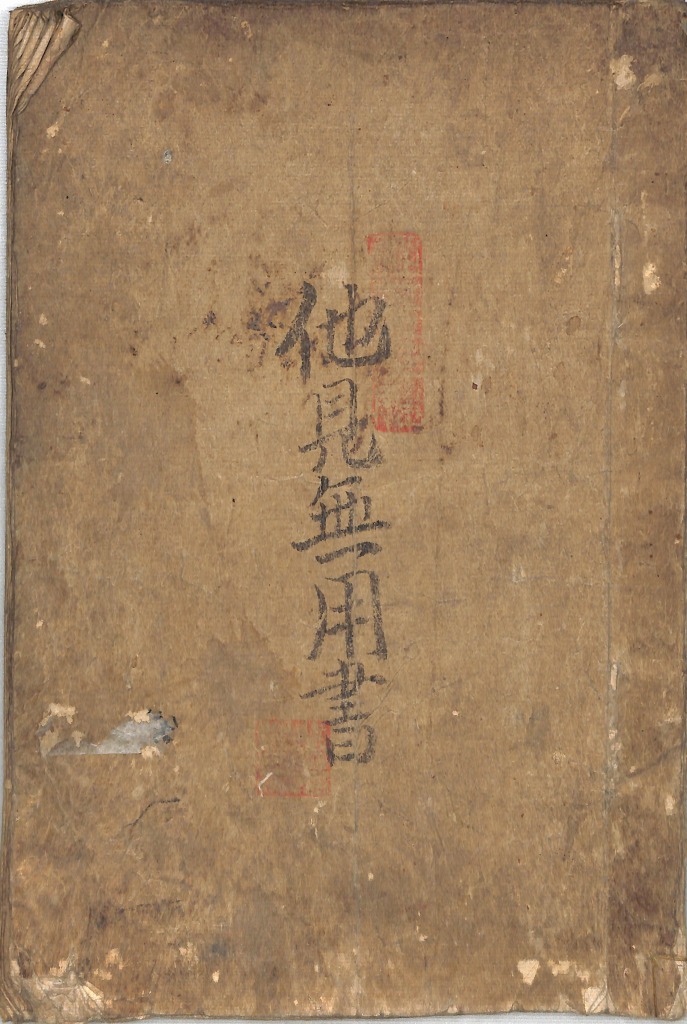 他見無用書